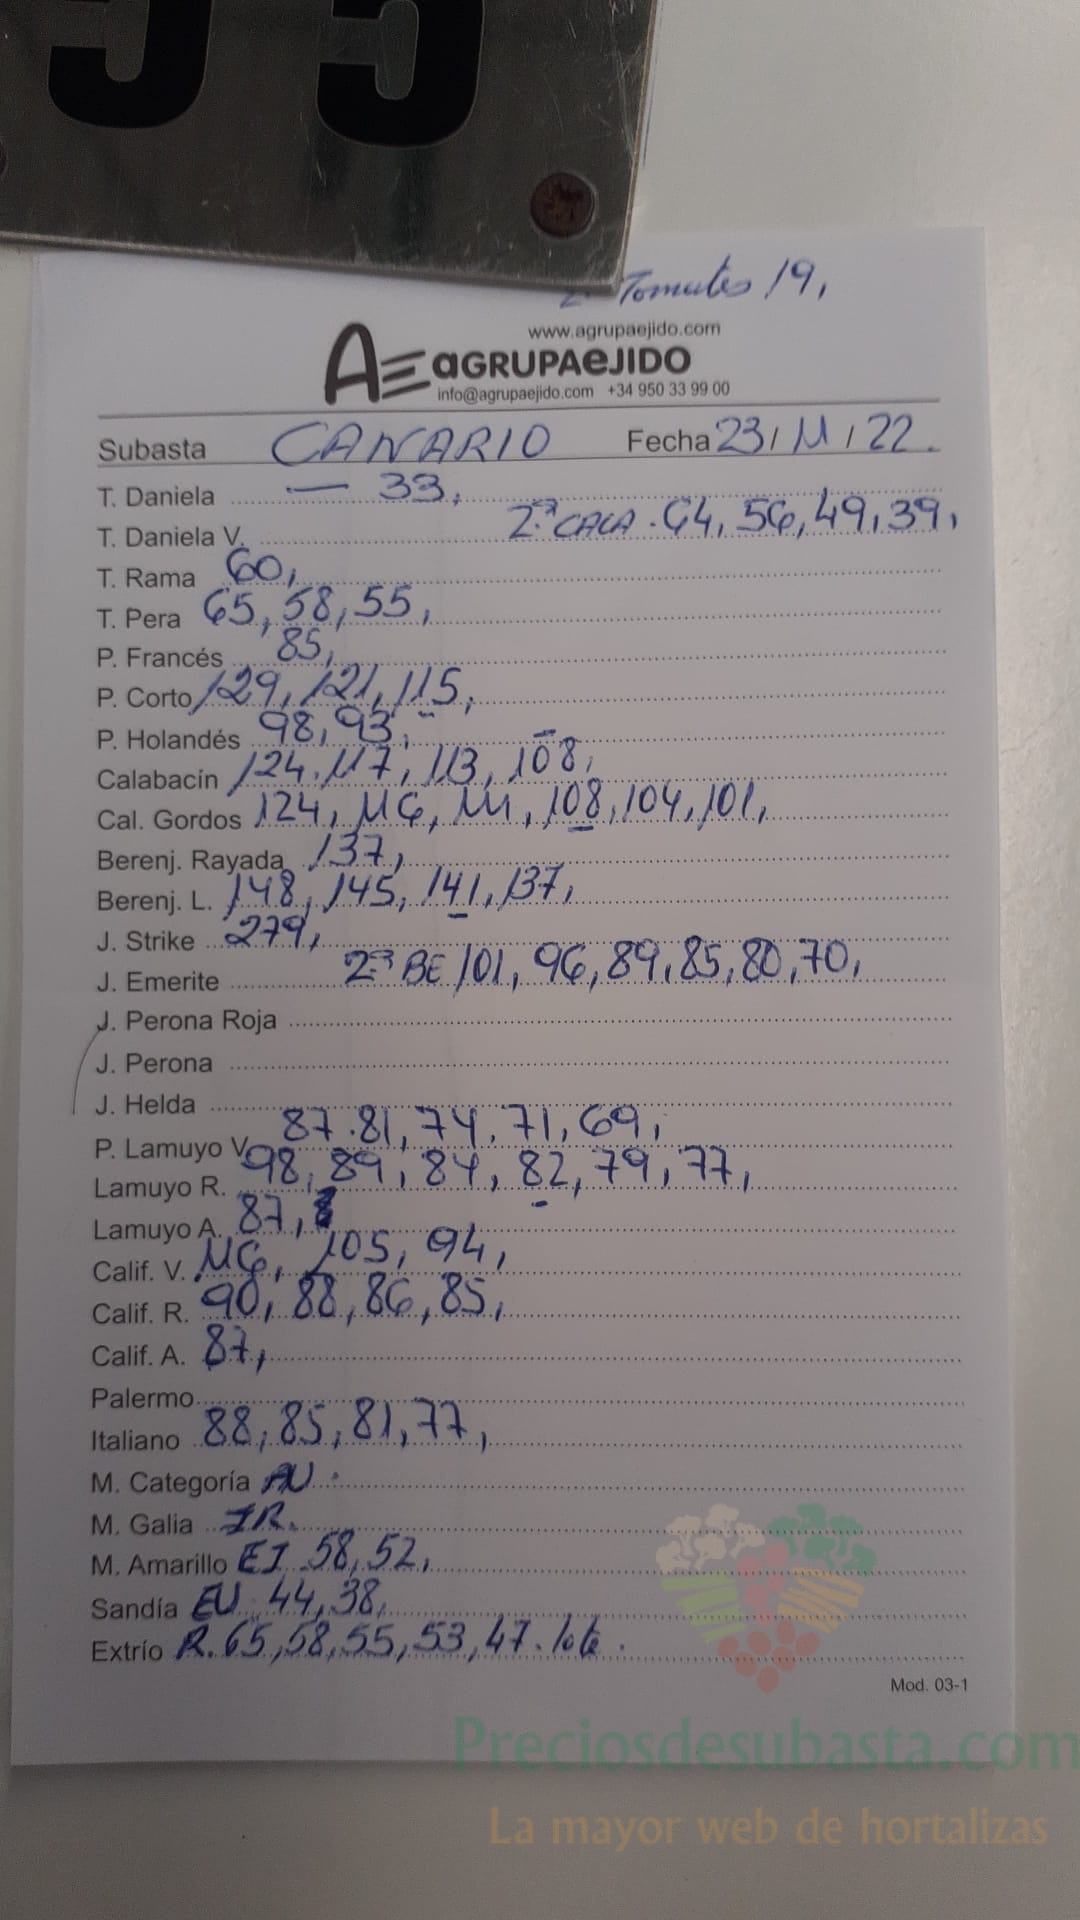 55
2ª Tomates 19,
www.agrupaejido.com
AE aGRUPAeJIDO
info@agrupaejido.com +34 950 33 99 00
Subasta CANARIO Fecha 23/11/22.
T. Daniela — 33,
T. Daniela V. 2ª CALA. 64, 56, 49, 39,
T. Rama 60,
T. Pera 65, 58, 55,
P. Francés 85,
P. Corto 129, 121, 115,
P. Holandés 98, 93,
Calabacín 124. 117, 113, 108,
Cal. Gordos 124, 116, 111, 108, 104, 101,
Berenj. Rayada 137,
Berenj. L. 148, 145, 141, 137,
J. Strike 279,
J. Emerite 2ª BE 101, 96, 89, 85, 80, 70,
J. Perona Roja
J. Perona
J. Helda
P. Lamuyo V. 87. 81, 74, 71, 69,
Lamuyo R. 98, 89, 84, 82, 79, 77,
Lamuyo A. 87,
Calif. V. 116, 105, 94,
Calif. R. 90, 88, 86, 85,
Calif. A. 87,
Palermo
Italiano 88, 85, 81, 77,
M. Categoría AU.
M. Galia IR.
M. Amarillo EI 58, 52,
Sandía EU 44, 38,
Extrío R. 65, 58, 55, 53, 47. lote.
Mod. 03-1
Preciosdesubasta.com
La mayor web de hortalizas